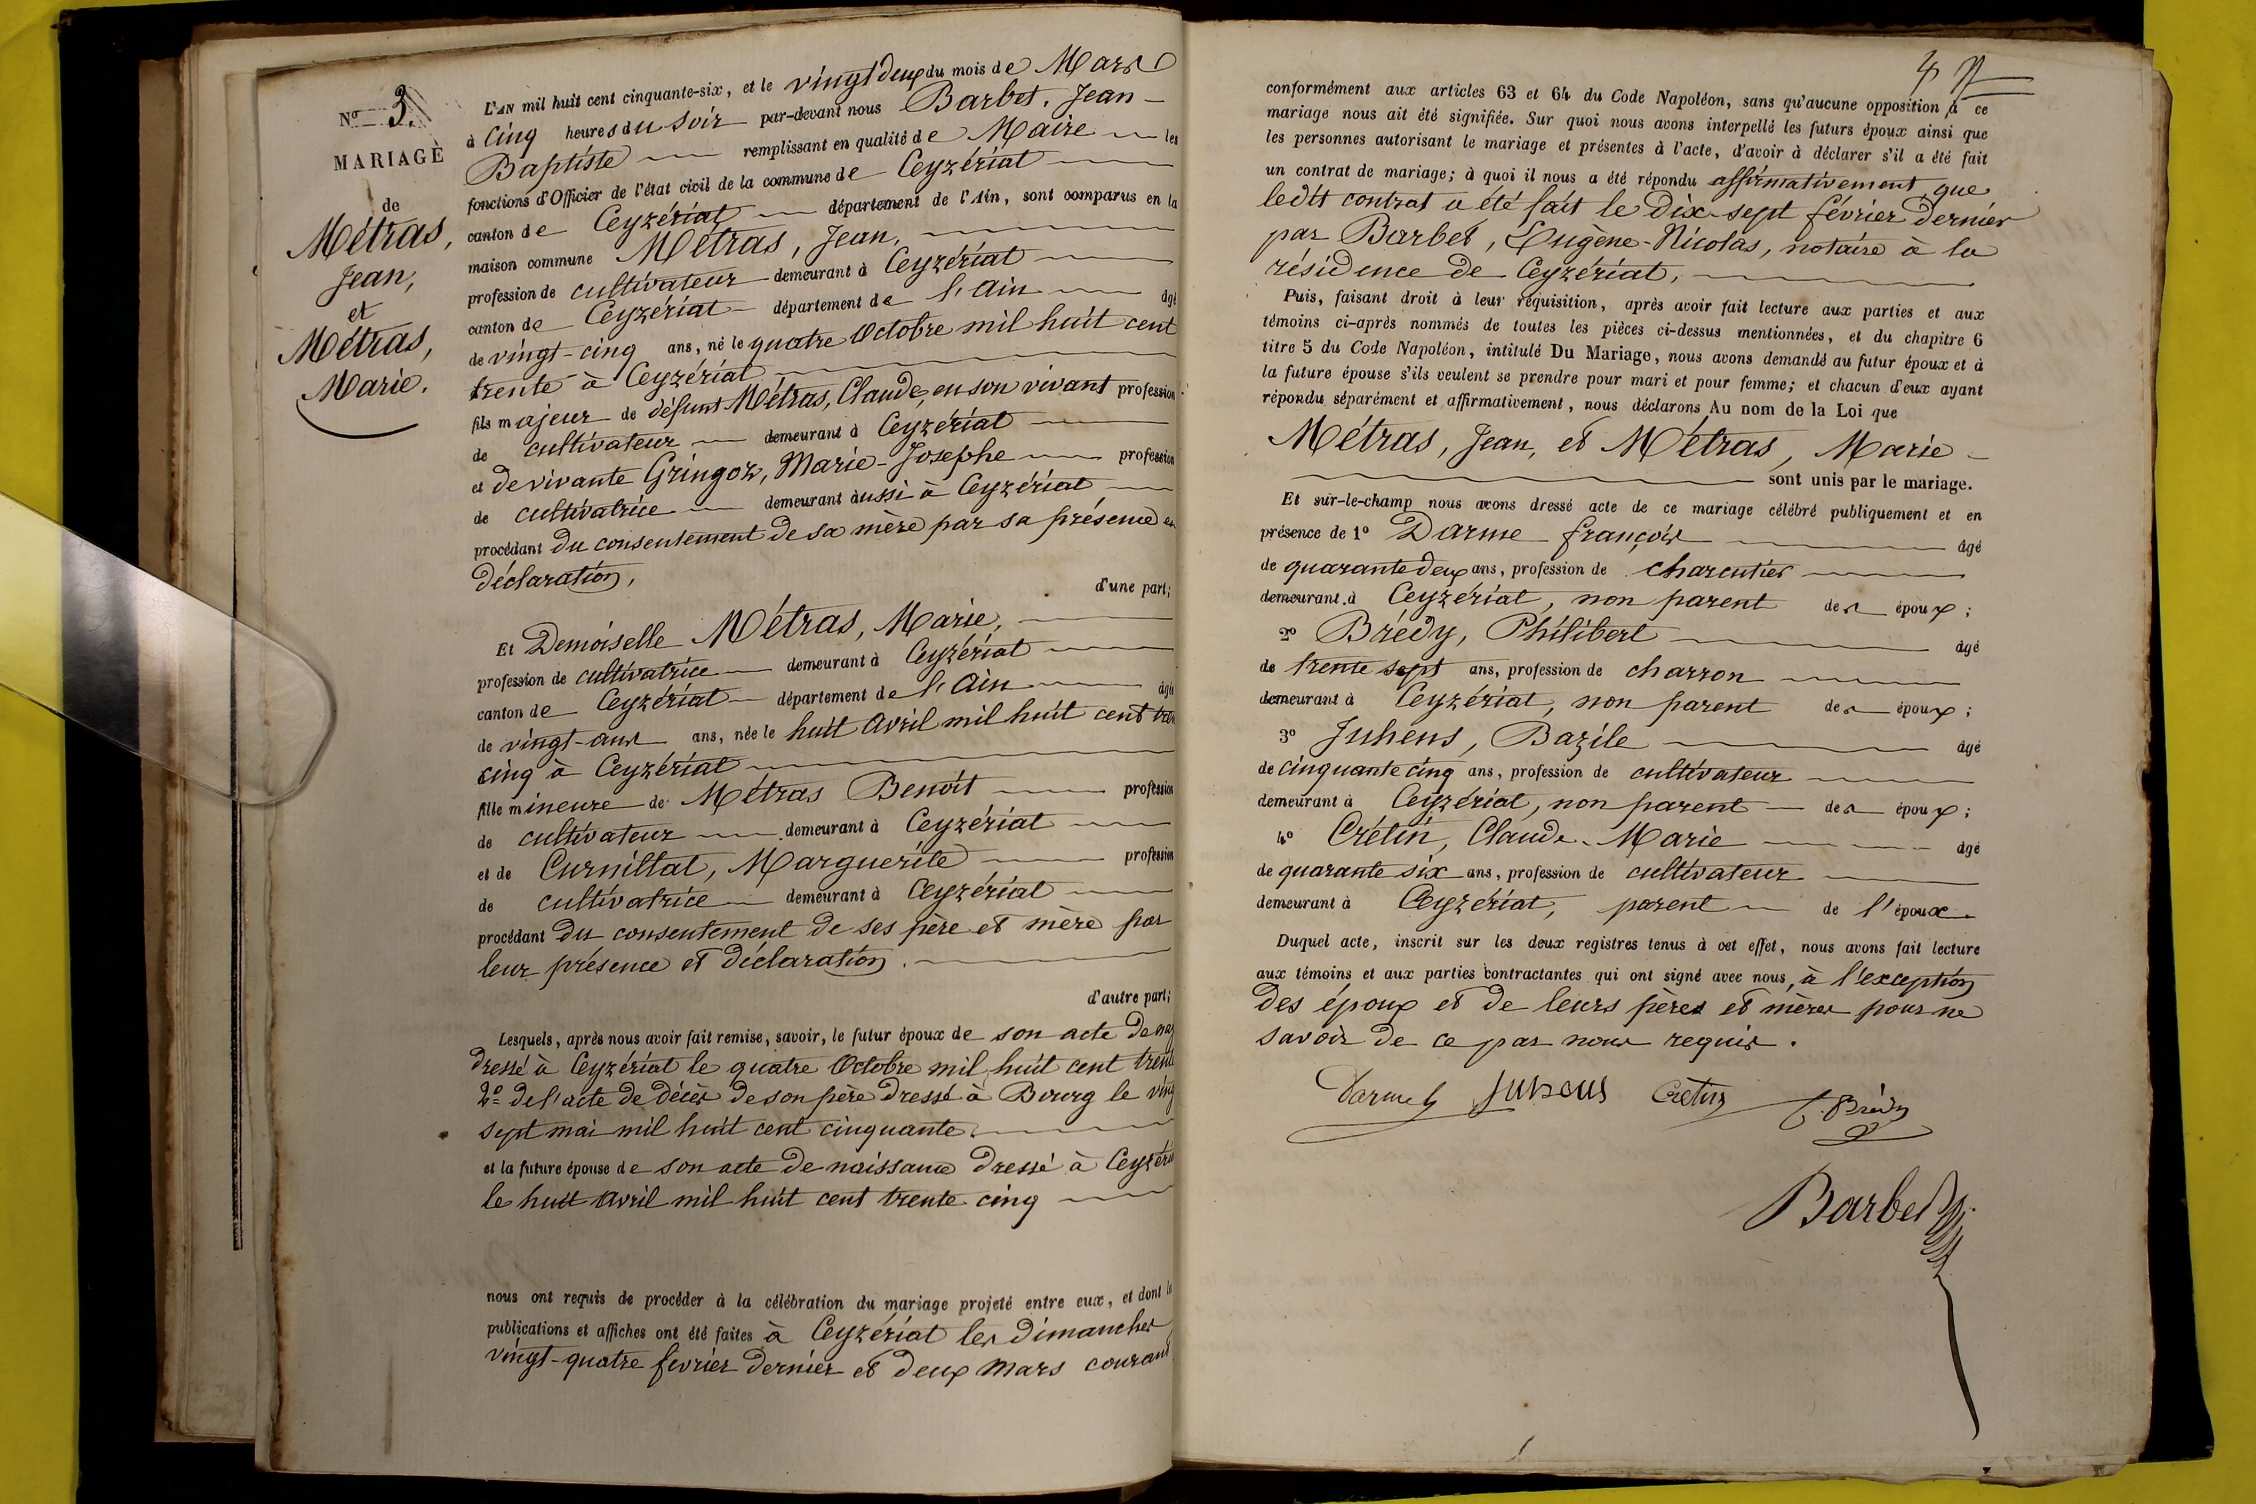 No 3.
MARIAGE
de
Métras,
Jean,
et
Métras,
Marie.
L'AN mil huit cent cinquante-six, et le vingt deux du mois de Mars
à Cinq heures du Soir par-devant nous Barbet, Jean-
Baptiste remplissant en qualité de Maire les
fonctions d'Officier de l'état civil de la commune de Ceyzériat
canton de Ceyzériat département de l'Ain, sont comparus en la
maison commune Métras, Jean,
profession de cultivateur demeurant à Ceyzériat
canton de Ceyzériat département de l'Ain âgé
de vingt-cinq ans, né le quatre Octobre mil huit cent
trente à Ceyzériat
fils majeur de défunt Métras, Claude, en son vivant profession
de cultivateur demeurant à Ceyzériat
et de vivante Gringoz, Marie-Josephe profession
de cultivatrice demeurant aussi à Ceyzériat
procédant du consentement de sa mère par sa présence et
déclaration,
d'une part;
Et Demoiselle Métras, Marie,
profession de cultivatrice demeurant à Ceyzériat
canton de Ceyzériat département de l'Ain âgée
de vingt-ans ans, née le huit Avril mil huit cent tren
cinq à Ceyzériat
fille mineure de Métras Benoit profession
de cultivateur demeurant à Ceyzériat
et de Curnillat, Marguerite profession
de cultivatrice demeurant à Ceyzériat
procédant du consentement de ses père et mère par
leur présence et déclaration.
d'autre part;
Lesquels, après nous avoir fait remise, savoir, le futur époux de son acte de nai
dressé à Ceyzériat le quatre Octobre mil huit cent trente
2o de l'acte de décès de son père dressé à Bourg le ving
sept mai mil huit cent cinquante
et la future épouse de son acte de naissance dressé à Ceyzéria
le huit Avril mil huit cent trente cinq
nous ont requis de procéder à la célébration du mariage projeté entre eux, et dont les
publications et affiches ont été faites à Ceyzériat les dimanches
vingt-quatre fevrier dernier et deux Mars courant
conformément aux articles 63 et 64 du Code Napoléon, sans qu'aucune opposition à ce
mariage nous ait été signifiée. Sur quoi nous avons interpellé les futurs époux ainsi que
les personnes autorisant le mariage et présentes à l'acte, d'avoir à déclarer s'il a été fait
un contrat de mariage; à quoi il nous a été répondu affirmativement, que
ledit contrat a été fait le Dix-sept février dernier
par Barbet, Eugène-Nicolas, notaire à la
résidence de Ceyzériat,
Puis, faisant droit à leur réquisition, après avoir fait lecture aux parties et aux
témoins ci-après nommés de toutes les pièces ci-dessus mentionnées, et du chapitre 6
titre 5 du Code Napoléon, intitulé Du Mariage, nous avons demandé au futur époux et à
la future épouse s'ils veulent se prendre pour mari et pour femme; et chacun d'eux ayant
répondu séparément et affirmativement, nous déclarons Au nom de la Loi que
Métras, Jean, et Métras, Marie
sont unis par le mariage.
Et sur-le-champ nous avons dressé acte de ce mariage célébré publiquement et en
présence de 1o Darme françois âgé
de quarante deux ans, profession de charcutier
demeurant à Ceyzériat, non parent des époux;
2o Brédy, Philibert âgé
de trente sept ans, profession de charron
demeurant à Ceyzériat, non parent des époux;
3o Juhens, Bazile âgé
de cinquante cinq ans, profession de cultivateur
demeurant à Ceyzériat, non parent des époux;
4o Crétin, Claude-Marie âgé
de quarante six ans, profession de cultivateur
demeurant à Ceyzériat, parent de l'époux.
Duquel acte, inscrit sur les deux registres tenus à cet effet, nous avons fait lecture
aux témoins et aux parties contractantes qui ont signé avec nous, à l'exception
des époux et de leurs pères et mères pour ne
savoir de ce par nous requis.
Darme Juhens Crétin P. Brédy
Barbet